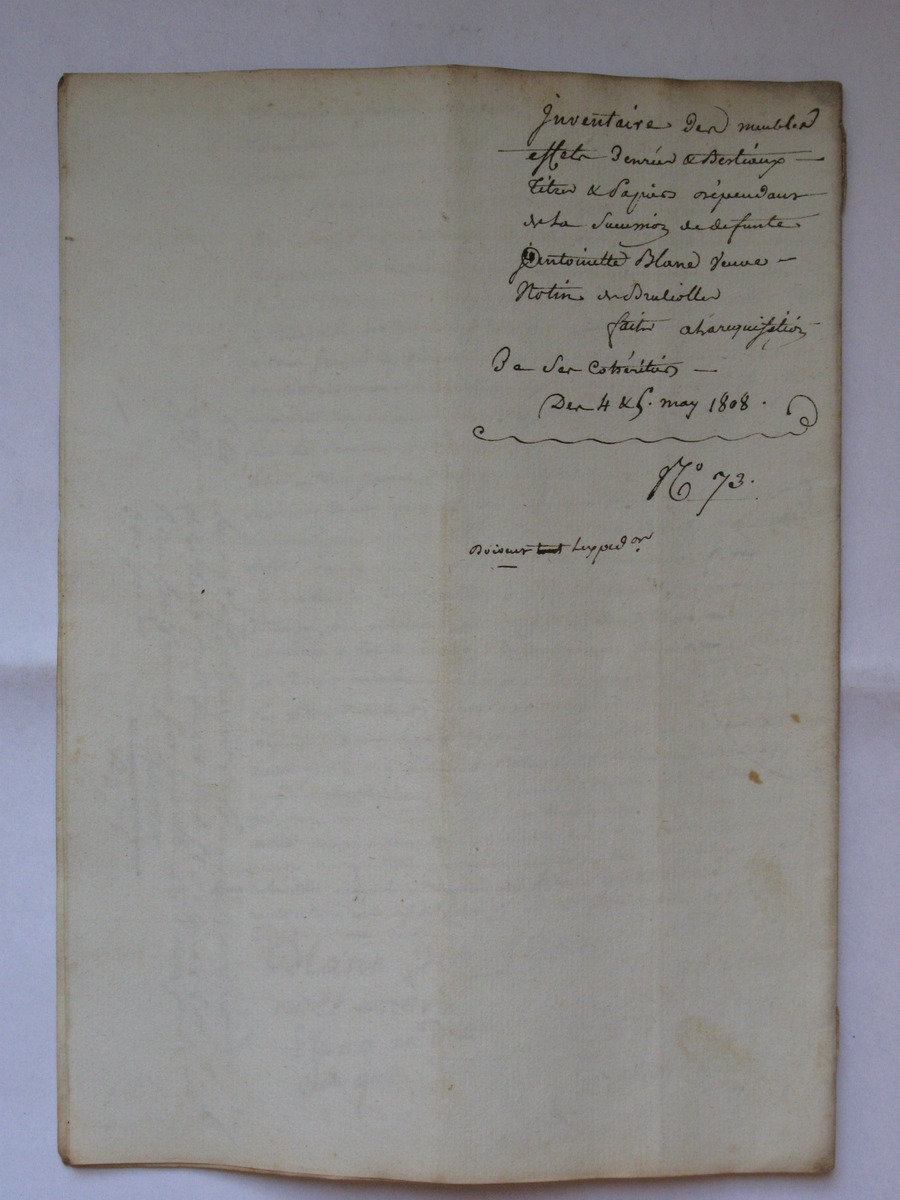 Inventaire des meubles
effets denrées & Bestiaux —
Titres & Papiers dépendans
de la succession de defunte
Antoinette Blanc Veuve —
Notin de Brulioles
faite a la requisition
De ses cohéritiers —
Des 4 & 5. may 1808.
N.° 73.
Lexped.on